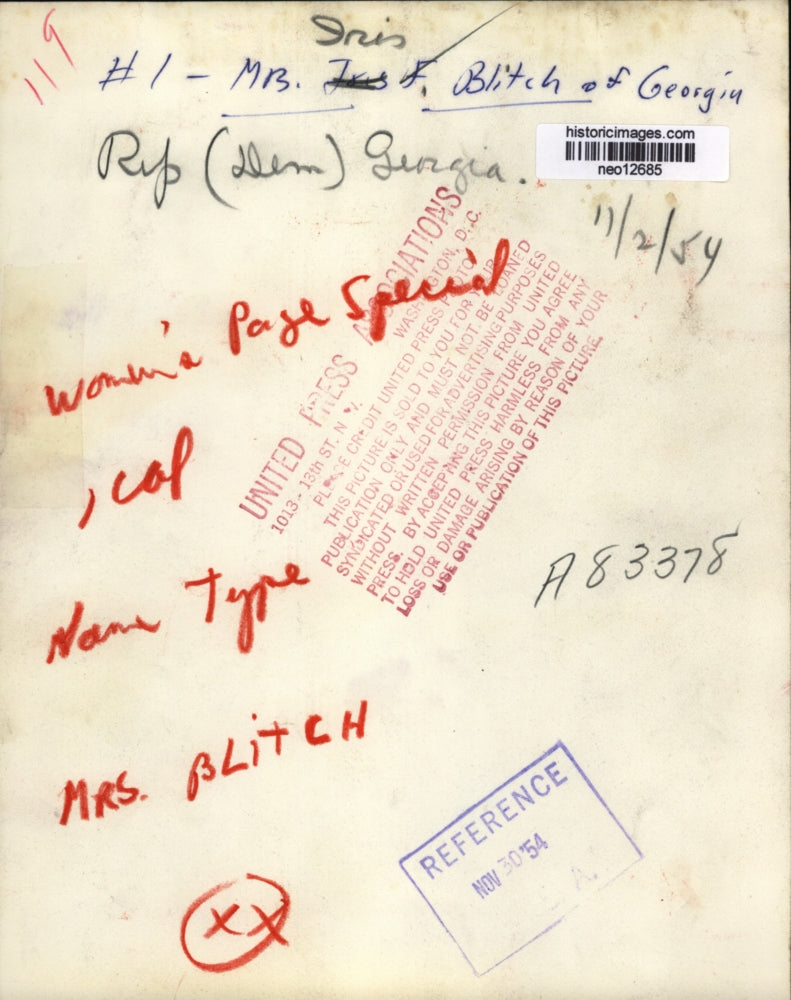 119
Iris
#1 - MRS. Iris F. Blitch of Georgia
historicimages.com
neo12685
Rep (Dem) Georgia.
11/2/54
Women's Page Special
UNITED PRESS ASSOCIATIONS
1013 - 13th ST. N. WASHINGTON, D. C.
PLEASE CREDIT UNITED PRESS PHOTO
THIS PICTURE IS SOLD TO YOU FOR YOUR
PUBLICATION ONLY AND MUST NOT BE LOANED
SYNDICATED OR USED FOR ADVERTISING PURPOSES
WITHOUT WRITTEN PERMISSION FROM UNITED
PRESS. BY ACCEPTING THIS PICTURE YOU AGREE
TO HOLD UNITED PRESS HARMLESS FROM ANY
LOSS OR DAMAGE ARISING BY REASON OF YOUR
USE OR PUBLICATION OF THIS PICTURE.
1 col
A83378
Name Type
MRS. BLITCH
REFERENCE
NOV 30 '54
A.
XX